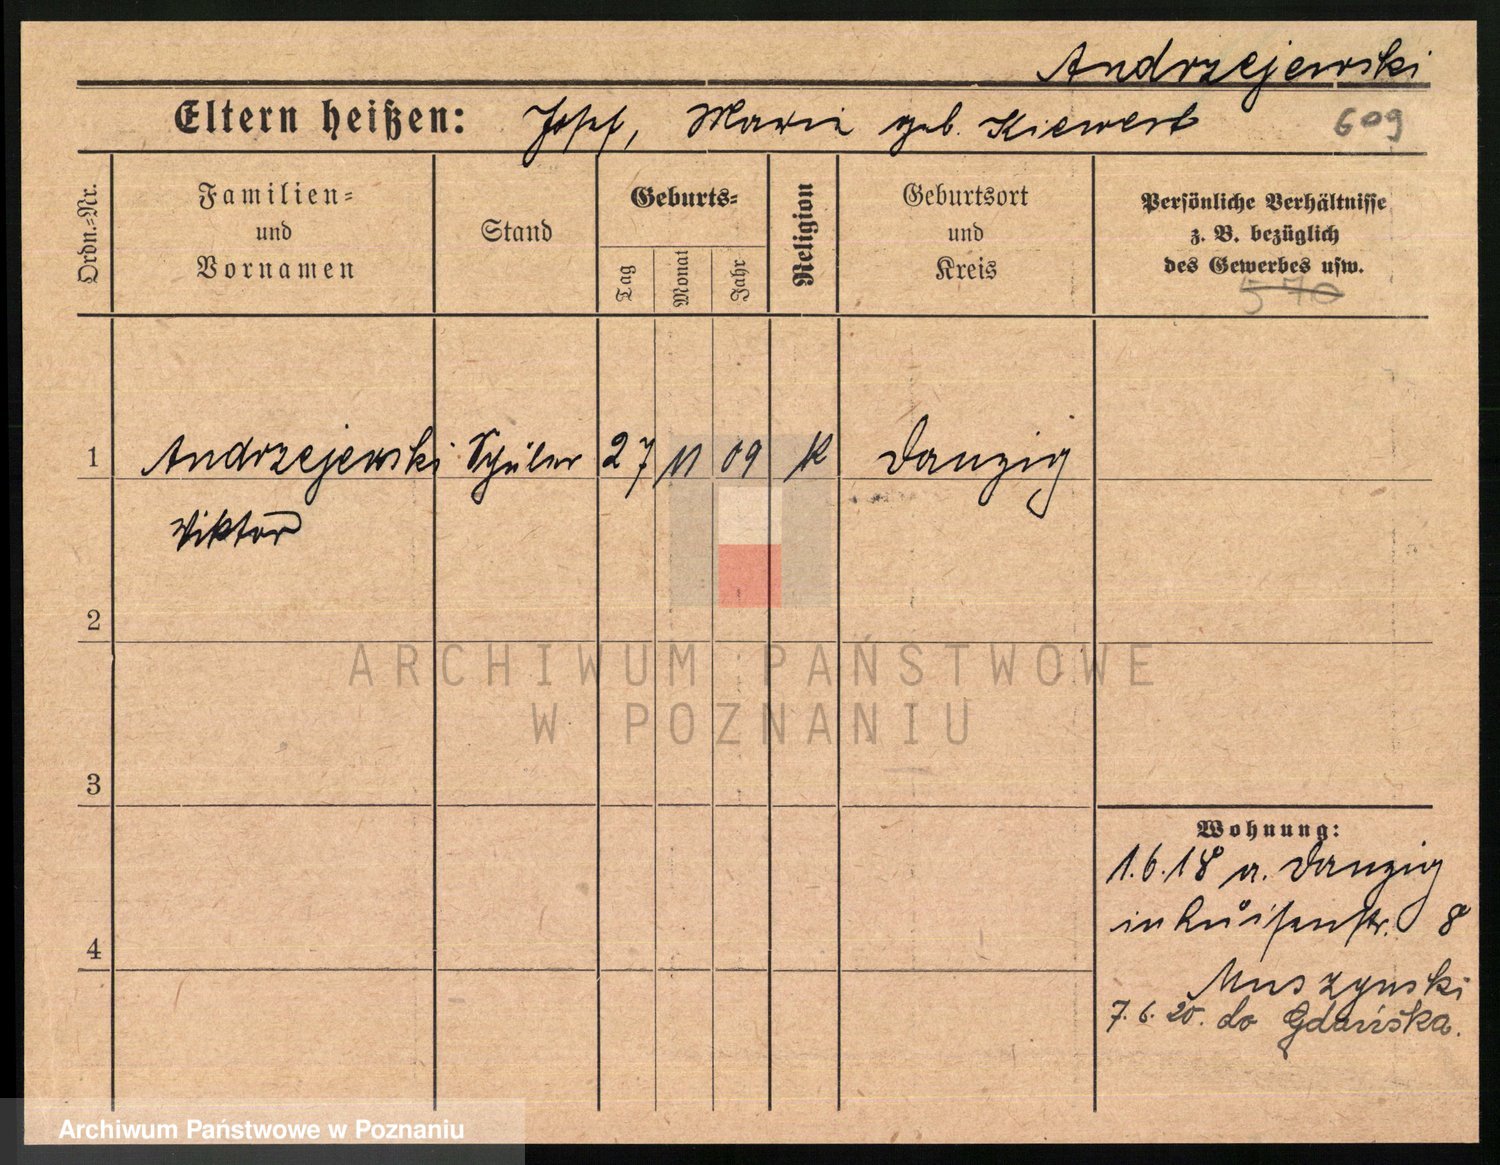 Andrzejewski
Eltern heißen: Josef, Maria geb. Kiewert 609
Ordn.-Nr.
Familien-
und
Vornamen
Stand
Geburts-
Tag
Monat
Jahr
Religion
Geburtsort
und
Kreis
Persönliche Verhältnisse
z. B. bezüglich
des Gewerbes usw.
570
1 Andrzejewski Schüler 27 11 09 K Danzig
Viktor
2
ARCHIWUM PAŃSTWOWE
W POZNANIU
3
Wohnung:
1.6.18 a. Danzig
in Luisenstr. 8
4
Muszynski
7.6.20. do Gdańska.
Archiwum Państwowe w Poznaniu